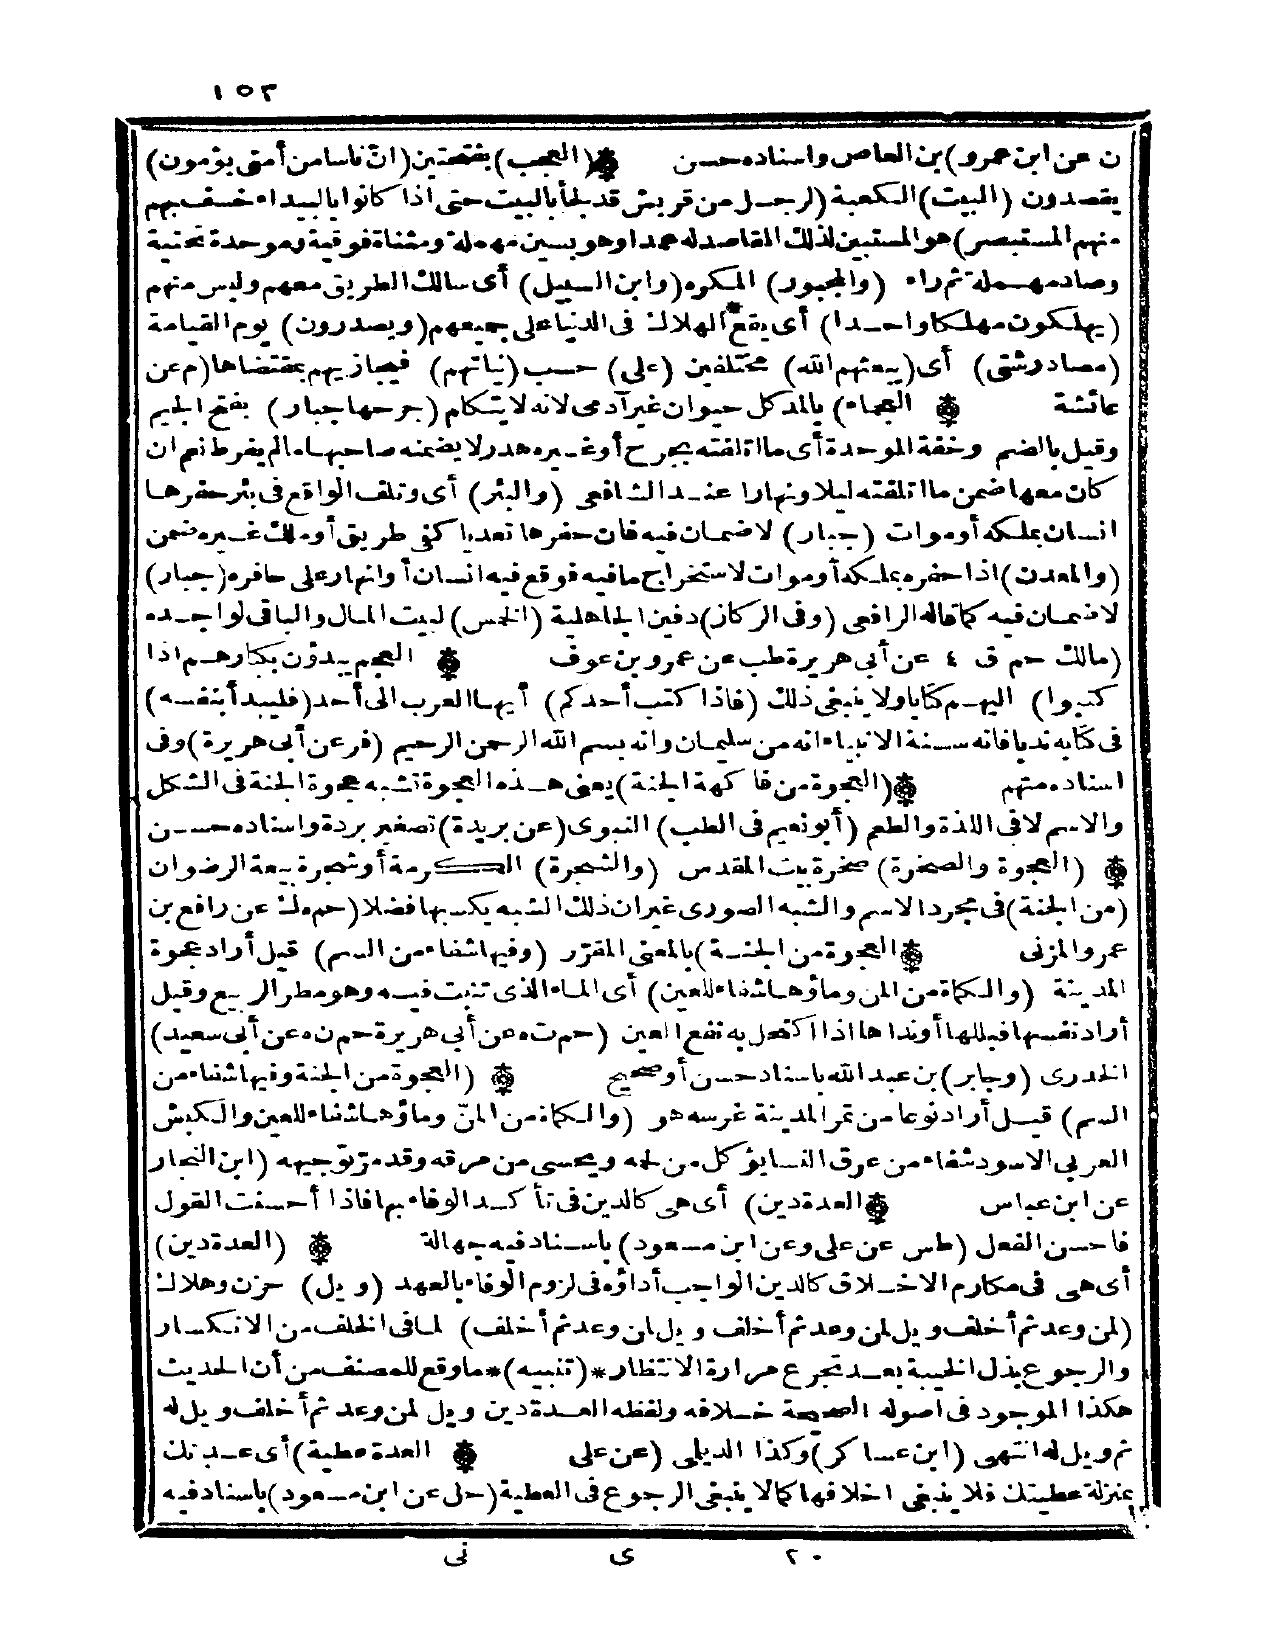 ١٥٣
ن عن ابن عمرو) بن العاص واسناده حسن (العجب) بفتحتين (انّ ناسا من أمتى يؤمون)
يقصدون (البيت) الكعبة (لرجل من قريش قد لجأ بالبيت حتى اذا كانوا بالبيداء خسف بهم
منهم المستبصر) هو المستبين لذلك القاصد له عمدا وهو بسين مهملة ومثناة فوقية وموحدة تحتية
وصاد مهملة ثم راء (والمجبور) المكره (وابن السبيل) أى سالك الطريق معهم وليس منهم
(يهلكون مهلكا واحدا) أى يقع الهلاك فى الدنيا على جميعهم (ويصدرون) يوم القيامة
(مصادر شتى) أى (يبعثهم الله) مختلفين (على) حسب (نياتهم) فيجازيهم بمقتضاها (م عن
عائشة العجماء) بالمد كل حيوان غير آدمى لانه لا يتكلم (جرحها جبار) بفتح الجيم
وقيل بالضم وخفة الموحدة أى ما اتلفته بجرح أو غيره هدر لا يضمنه صاحبها ما لم يفرط نعم ان
كان معها ضمن ما اتلفته ليلا ونهارا عند الشافعى (والبئر) أى وتلف الواقع فى بئر حفرها
انسان بملكه أو موات (جبار) لا ضمان فيه فان حفرها تعديا كفى طريق أو ملك غيره ضمن
(والمعدن) اذا حفره بملكه أو موات لاستخراج ما فيه فوقع فيه انسان أو انهار على حافره (جبار)
لا ضمان فيه كما قاله الرافعى (وفى الركاز) دفين الجاهلية (الخمس) لبيت المال والباقى لواجده
(مالك حم ق ٤ عن أبى هريرة طب عن عمرو بن عوف العجم يبدؤن بكبارهم اذا
كتبوا) اليهم كتابا ولا ينبغى ذلك (فاذا كتب أحدكم) أيها العرب الى أحد (فليبدأ بنفسه)
فى كتابه ندبا فانه سنة الانبياء انه من سليمان وانه بسم الله الرحمن الرحيم (فر عن أبى هريرة) وفى
اسناده متهم (العجوة من فاكهة الجنة) يعنى هذه العجوة تشبه عجوة الجنة فى الشكل
والاسم لا فى اللذة والطعم (أبو نعيم فى الطب) النبوى (عن بريدة) تصغير بردة واسناده حسن
(العجوة والصخرة) صخرة بيت المقدس (والشجرة) الكرمة أو شجرة بيعة الرضوان
(من الجنة) فى مجرد الاسم والشبه الصورى غير ان ذلك الشبه يكسبها فضلا (حم ه ك عن رافع بن
عمرو المزنى العجوة من الجنة) بالمعنى المقرّر (وفيها شفاء من السم) قيل أراد عجوة
المدينة (والكمأة من المن وماؤها شفاء للعين) أى الماء الذى تنبت فيه وهو مطر الربيع وقيل
أراد نفسها فبللها أو نداها اذا اكتحل به نفع العين (حم ت ه عن أبى هريرة حم ن ه عن أبى سعيد)
الخدرى (وجابر) بن عبد الله باسناد حسن أو صحيح (العجوة من الجنة وفيها شفاء من
السم) قيل أراد نوعا من تمر المدينة غرسه هو (والكمأة من المنّ وماؤها شفاء للعين والكبش
العربى الاسود شفاء من عرق النسا يؤكل من لحمه ويحسى من مرقه وقد مرّ توجيهه (ابن النجار
عن ابن عباس العدة دين) أى هى كالدين فى تأكد الوفاء بها فاذا أحسنت القول
فاحسن الفعل (طس عن على وعن ابن مسعود) باسناد فيه جهالة (العدة دين)
أى هى فى مكارم الاخلاق كالدين الواجب أداؤه فى لزوم الوفاء بالعهد (ويل) حزن وهلاك
(لمن وعد ثم أخلف ويل لمن وعد ثم أخلف ويل لمن وعد ثم أخلف) لما فى الخلف من الانكسار
والرجوع بذل الخيبة بعد تجرع مرارة الانتظار * (تنبيه) * ما وقع للمصنف من أن الحديث
هكذا الموجود فى اصوله الصحيحة خلافه ولفظه العدة دين ويل لمن وعد ثم أخلف ويل له
ثم ويل له انتهى (ابن عساكر) وكذا الديلى (عن على العدة عطية) أى عدتك
بمنزلة عطيتك فلا ينبغى اخلافها كما لا ينبغى الرجوع فى العطية (حل عن ابن مسعود) باسناد فيه
٢٠ ى نى